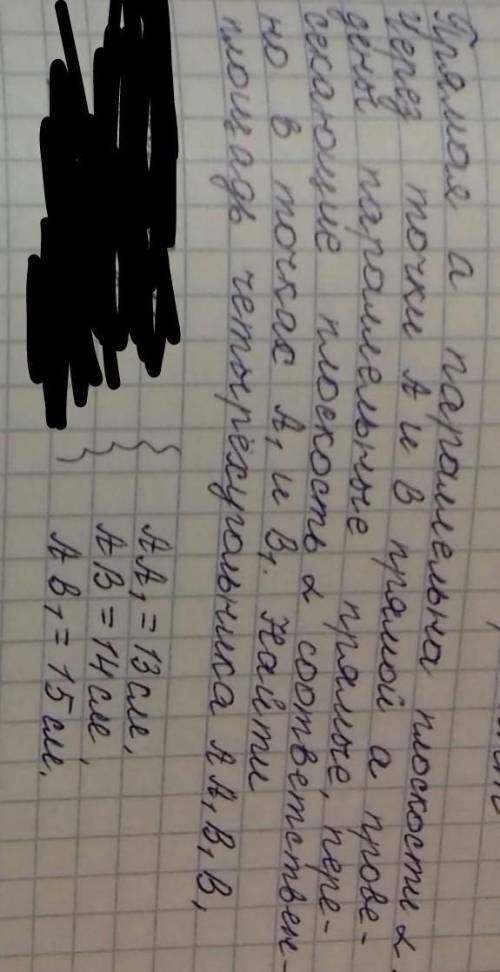 Прямая а параллельна плоскости α.
Через точки А и В прямой а прове-
дены параллельные прямые, пере-
секающие плоскость α соответствен-
но в точках А₁ и В₁. Найти
площадь четырёхугольника АА₁В₁В,
АА₁ = 13 см,
АВ = 14 см,
АВ₁ = 15 см.